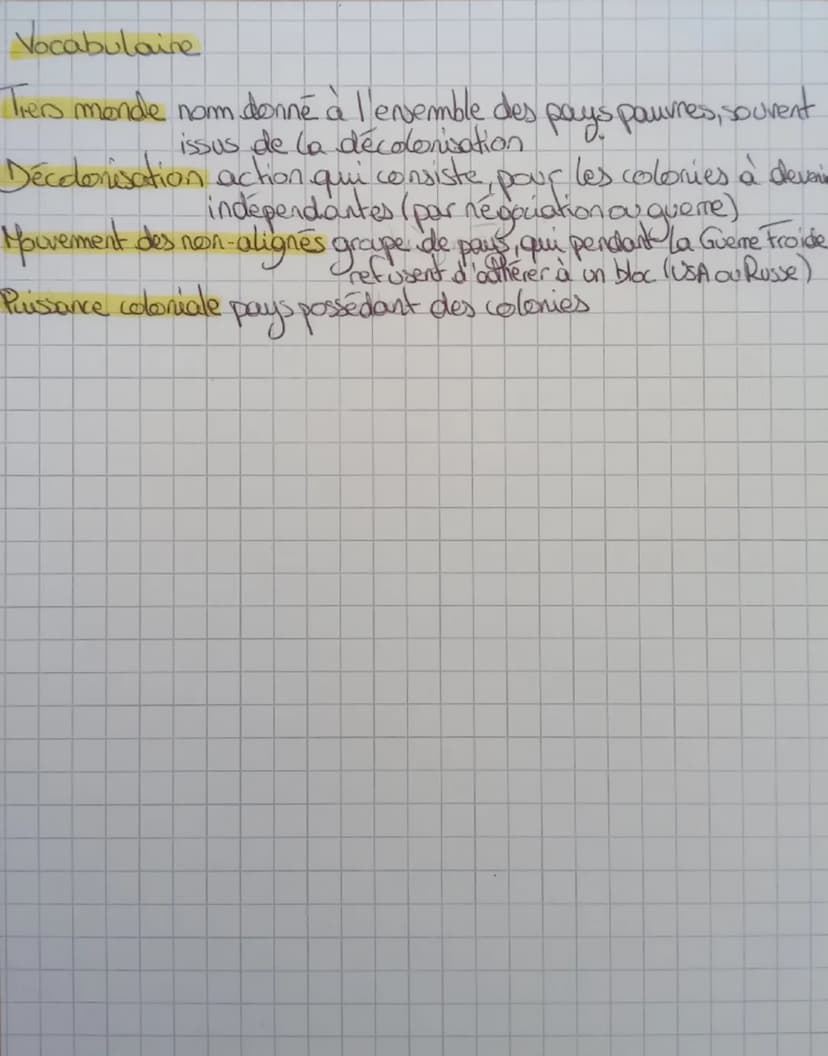 Vocabulaire
Tiers monde nom donné à l'ensemble des pays pauvres, souvent
issus de la décolonisation
Décolonisation action qui consiste, pour les colonies à devenir
indépendantes (par négociation ou guerre)
Mouvement des non-alignés groupe de pays, qui pendant la Guerre Froide
refusent d'adhérer à un bloc (USA ou Russe)
Puissance coloniale pays possédant des colonies